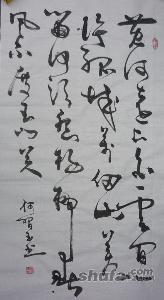 黄河远上白云间一
片孤城万仞山羌
笛何须怨杨柳春
风不度玉门关
shufa.com